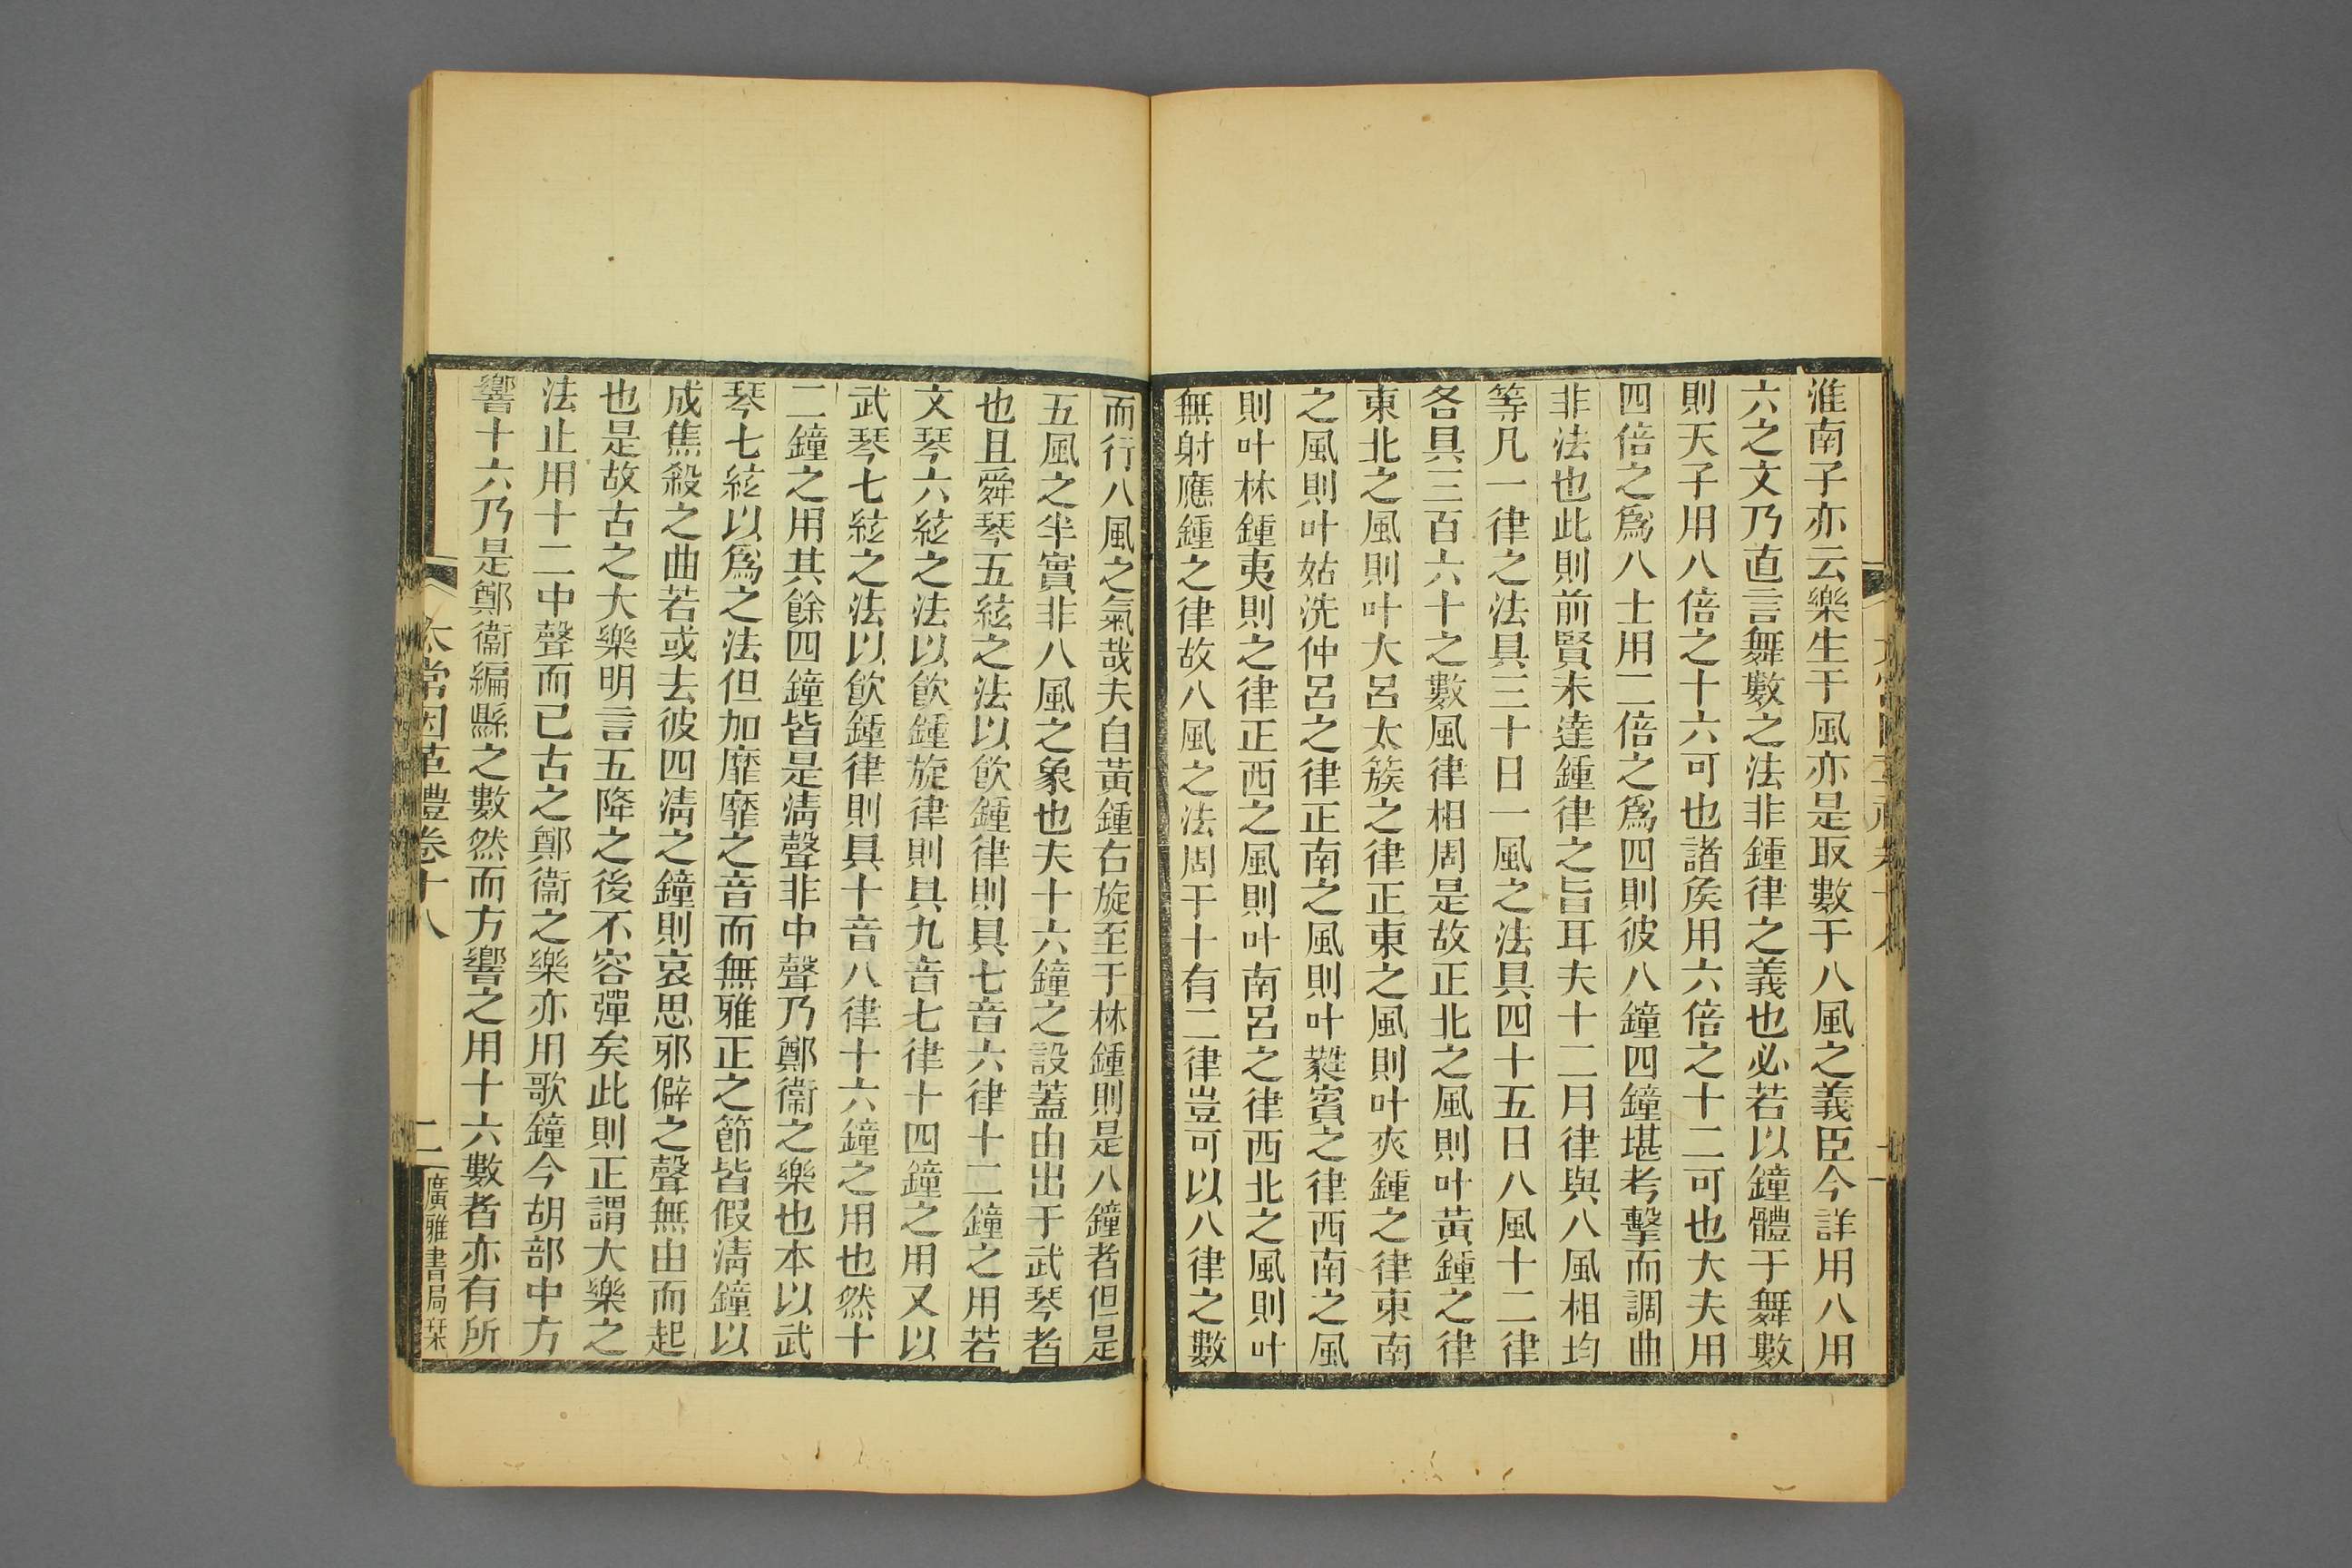 淮南子亦云樂生于風亦是取數于八風之義臣今詳用八用
六之文乃直言舞數之法非鍾律之義也必若以鐘體于舞數
則天子用八倍之十六可也諸矦用六倍之十二可也大夫用
四倍之爲八士用二倍之爲四則彼八鐘四鐘堪考擊而調曲
非法也此則前賢未達鍾律之旨耳夫十二月律與八風相均
等凡一律之法具三十日一風之法具四十五日八風十二律
各具三百六十之數風律相周是故正北之風則叶黃鍾之律
東北之風則叶大呂太簇之律正東之風則叶夾鍾之律東南
之風則叶姑洗仲呂之律正南之風則叶蕤賓之律西南之風
則叶林鍾夷則之律正西之風則叶南呂之律西北之風則叶
無射應鍾之律故八風之法周于十有二律豈可以八律之數
而行八風之氣哉夫自黃鍾右旋至于林鍾則是八鐘者但是
五風之半實非八風之象也夫十六鐘之設蓋由出于武琴者
也且舜琴五絃之法以飮鍾律則具七音六律十二鐘之用若
文琴六絃之法以飮鍾旋律則具九音七律十四鐘之用又以
武琴七絃之法以飮鍾律則具十音八律十六鐘之用也然十
二鐘之用其餘四鐘皆是淸聲非中聲乃鄭衞之樂也本以武
琴七絃以爲之法但加靡靡之音而無雅正之節皆假淸鐘以
成焦殺之曲若或去彼四淸之鐘則哀思邪僻之聲無由而起
也是故古之大樂明言五降之後不容彈矣此則正謂大樂之
法止用十二中聲而已古之鄭衞之樂亦用歌鐘今胡部中方
響十六乃是鄭衞編縣之數然而方響之用十六數者亦有所
太常因革禮卷十八
二
廣雅書局栞